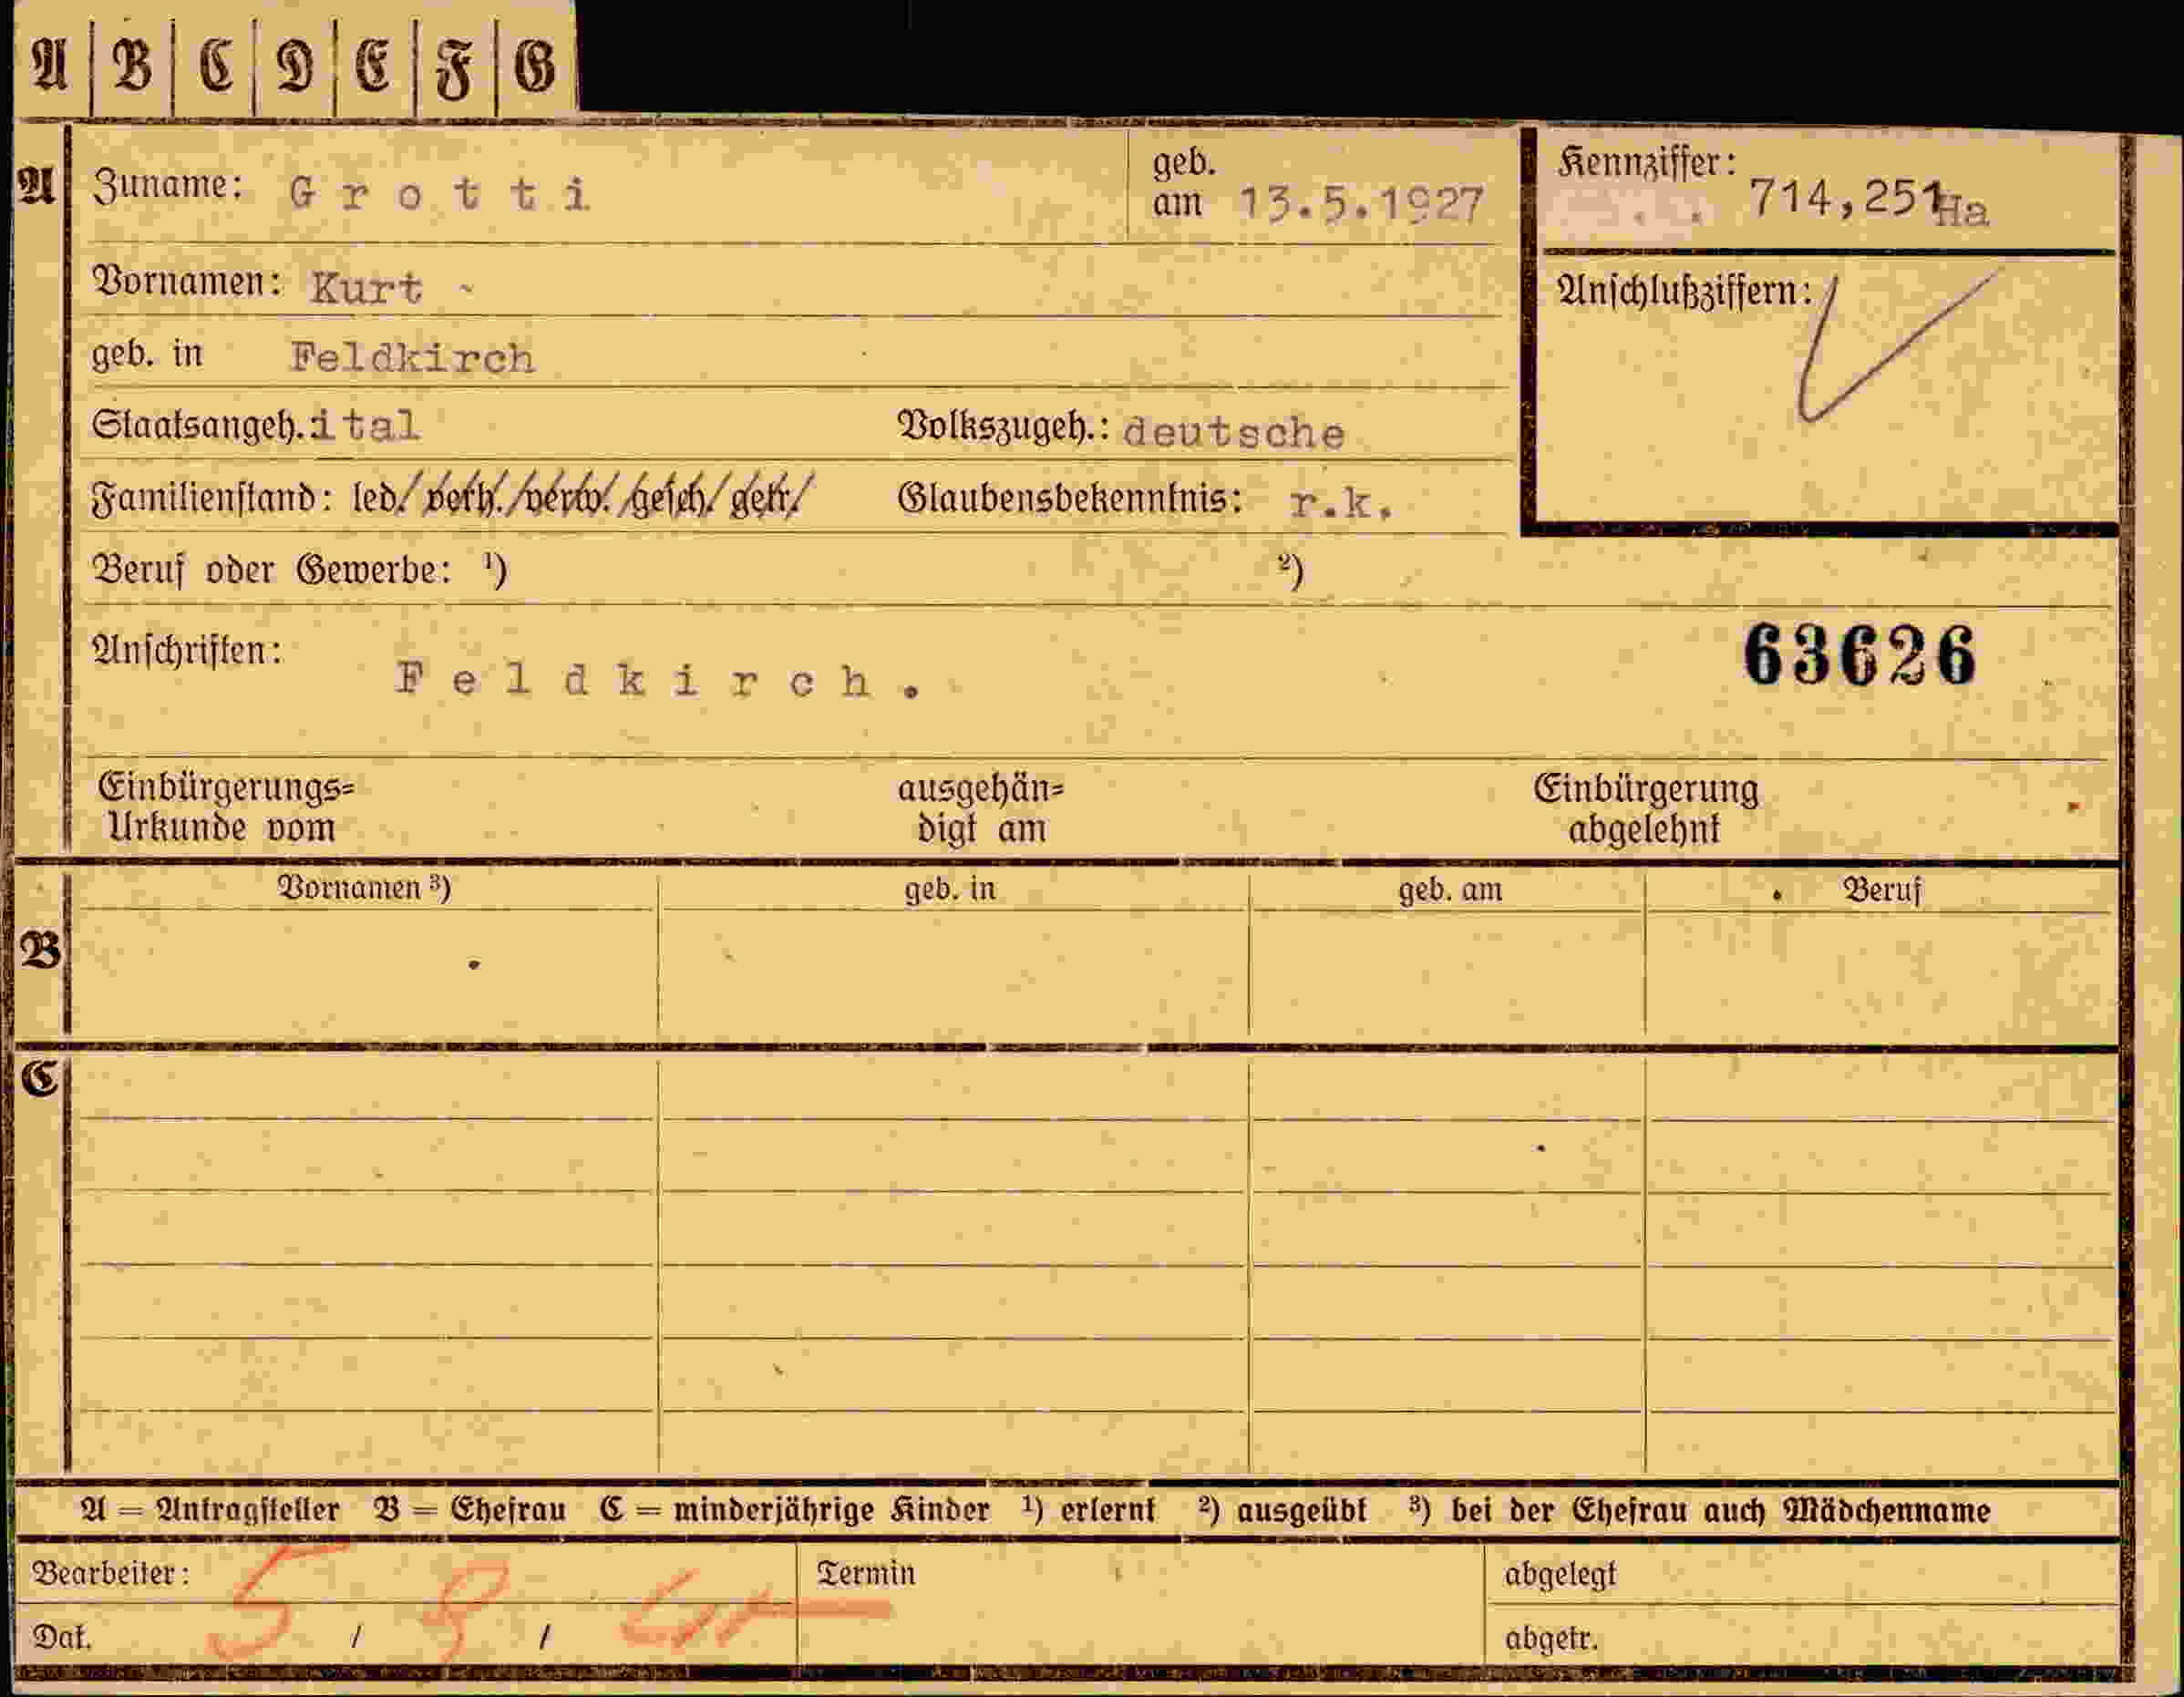 A B C D E F G
A Zuname: Grotti geb. am 13.5.1927 Kennziffer: 714,251 Ha
Vornamen: Kurt Anschlußziffern:
geb. in Feldkirch
Staatsangeh. ital Volkszugeh.: deutsche
Familienstand: led./verh./verw./gesch./getr./ Glaubensbekenntnis: r.k.
Beruf oder Gewerbe: ¹) ²)
Anschriften: Feldkirch. 63626
Einbürgerungs= ausgehän= Einbürgerung
Urkunde vom digt am abgelehnt
Vornamen ³) geb. in geb. am Beruf
B
C
A = Antragsteller B = Ehefrau C = minderjährige Kinder ¹) erlernt ²) ausgeübt ³) bei der Ehefrau auch Mädchenname
Bearbeiter: Termin abgelegt
Dat. 5 / 9 / abgetr.